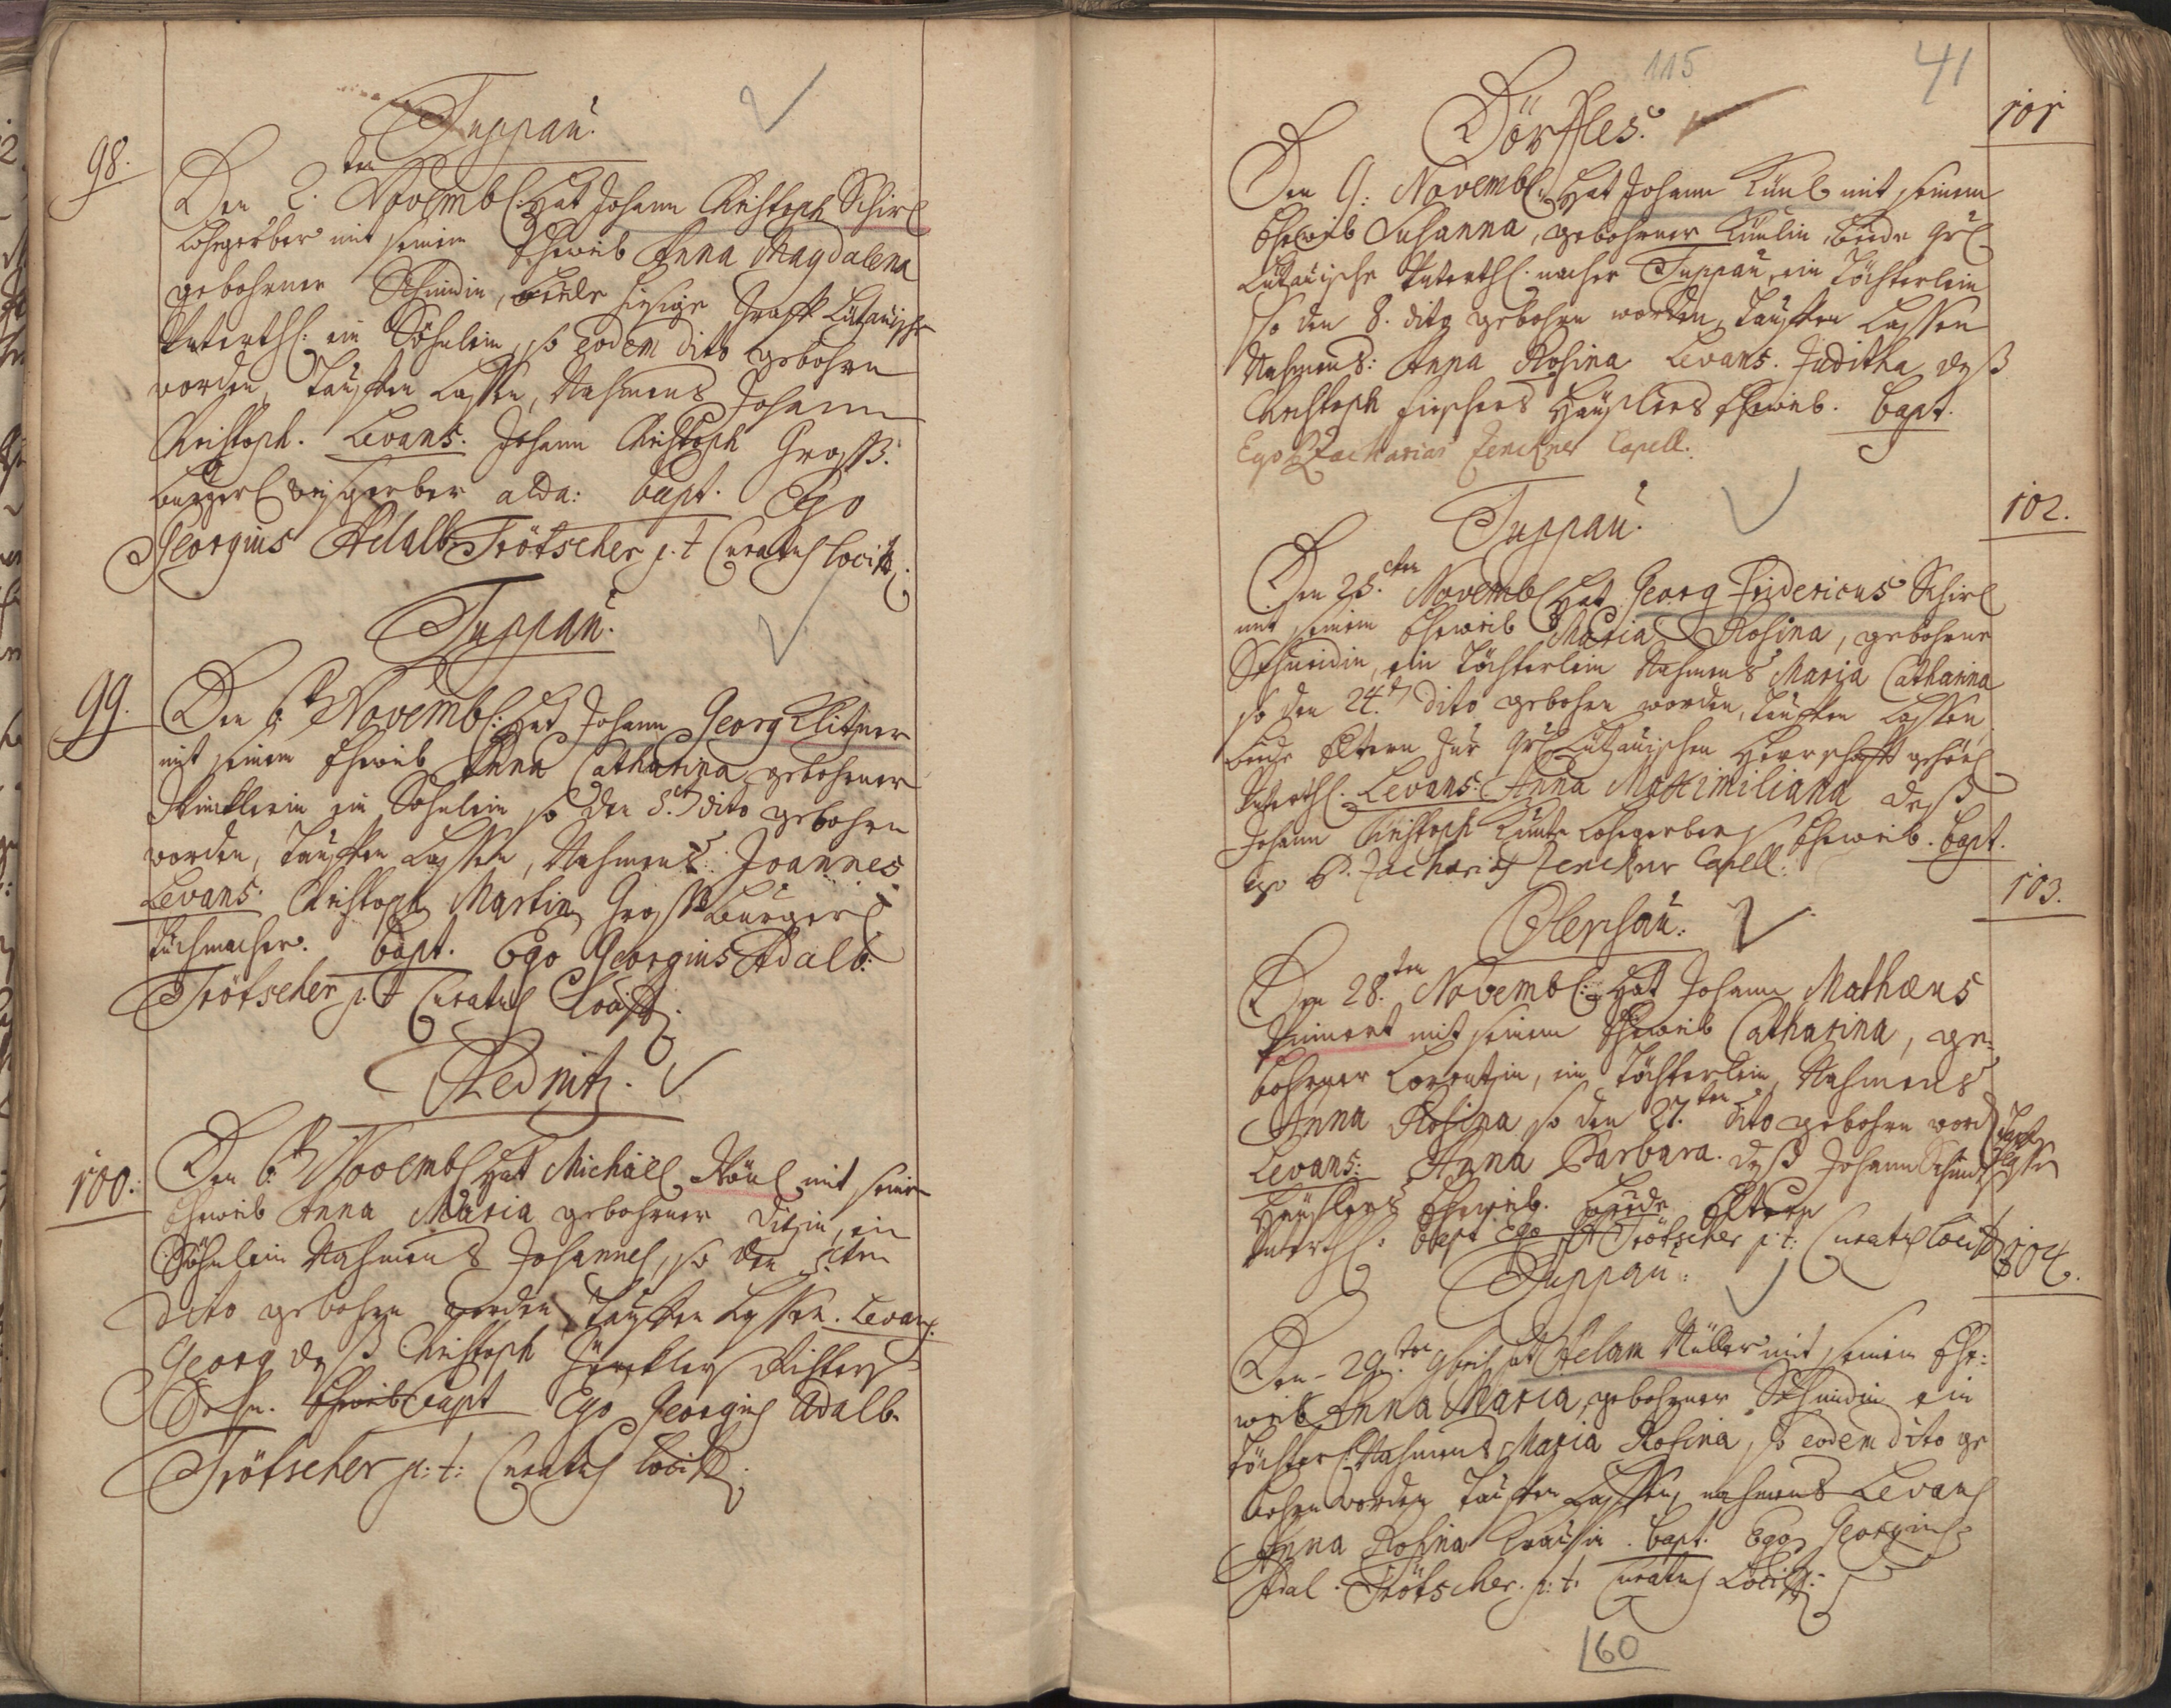 Tuppau.
98.
Den 2.ten Novembl: Hat Johann Christoph Schirl
Lohegerber mit seinem Eheweib Anna Magdalena
gebohrner Schmidin, beede hiesige Graff Lützauische
Unterthl: ein Söhnlein, so eodem dito gebohren
worden, tauffen lassen, Nahmens Johann
Christoph. Levans. Johann Christoph Groß.
burgerl. Weißgerber alda: bapt. Ego
Georgius Adalb. Trötscher p. t. Curatus loci
Tuppau.
99.
Den 6.t Novembl: Hat Johann Georg Klitzner
mit seinem Eheweib Anna Catharina gebohrner
ein Söhnlein so den 5.t dito gebohren
worden, tauffen lassen, Nahmens: Joannes
Levans. Christoph Martin Groß burgerl.
Tuchmacher. bapt. Ego Georgius Adalb:
Trötscher p. t. Curatus Loci
Rednitz.
100.
Den 6.t Novembl Hat Michäel mit seinem
Eheweib Anna Maria gebohrner ein
Söhnlein Nahmens Johannes, so den 5ten
dito gebohren worden tauffen lassen. Levans.
Georg deß Christoph Richters
Sohn. Eheweib bapt Ego Georgius Adalb.
Trötscher p: t: Curatus loci
115
41
Dörffles.
101
Den 9: Novembl: Hat Johann Künl mit seinem
Eheweib Susanna, gebohrner Künlin, beede Grl
Lützauische Unterthl. nacher Tuppau, ein Töchterlein
so den 8. dito gebohren worden, tauffen lassen
Nahmens: Anna Rosina Levans. Juditha, deß
Christoph Fischers Häuslers Eheweib. bapt.
Ego P Zacharias Zenckner Capell.
Tuppau.
102.
Den 25.ten Novembl Hat Georg Fridericus Schirl
mit seinem Eheweib Maria Rosina, gebohrne
Schmidin, ein Töchterlein Nahmens Maria Catharina
so den 24.t dito gebohren worden, tauffen lassen
beede Eltern zur Grl Lützauischen Herrschafft gehörl
Unterthl. Levans: Anna Maximiliana deß
Johann Christoph Lohegerbers Eheweib. bapt.
ego P. Zacharias Zenckner Capell:
Olerschau.
103.
Den 28.ten Novembl: Hat Johann Mathæus
mit seinem Eheweib Catharina, ge-
bohrner Lorentzin, ein Töchterlein, Nahmens
Anna Rosina so den 27.ten dito gebohren word tauff
lassen
Levans: Anna Barbara deß Johann Schmidts
Häuslers Eheweib. beede Eltern
Unterthl: bapt Ego A Trötscher p: t: Curatus loci
Tuppau.
104.
Den 29.ten 9bris hat Adam Müller mit seinem Ehe:
weib Anna Maria, gebohrner Schmidin ein
Töchterl: Nahmens Maria Rosina, so eodem dito ge
bohren worden tauffen lassen, nahmens Levans
Anna Rosina bapt. Ego Georgius
Adal. Trötscher. p: t. Curatus Loci
160